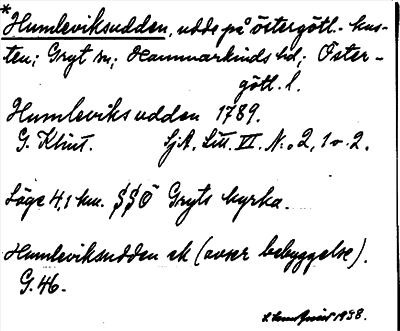 *
Humleviksudden, udde på östergötl.- kus-
ten; Gryt sn; Hammarkinds hd; Öster-
götl. l.
Humleviks udden 1789.
G. Klint. SjA, Litt. VI. N:o 2, 1 o. 2.
Läge 4,1 km. SSÖ Gryts kyrka.
Humleviksudden ek (avser bebyggelse).
G.46.
1938.